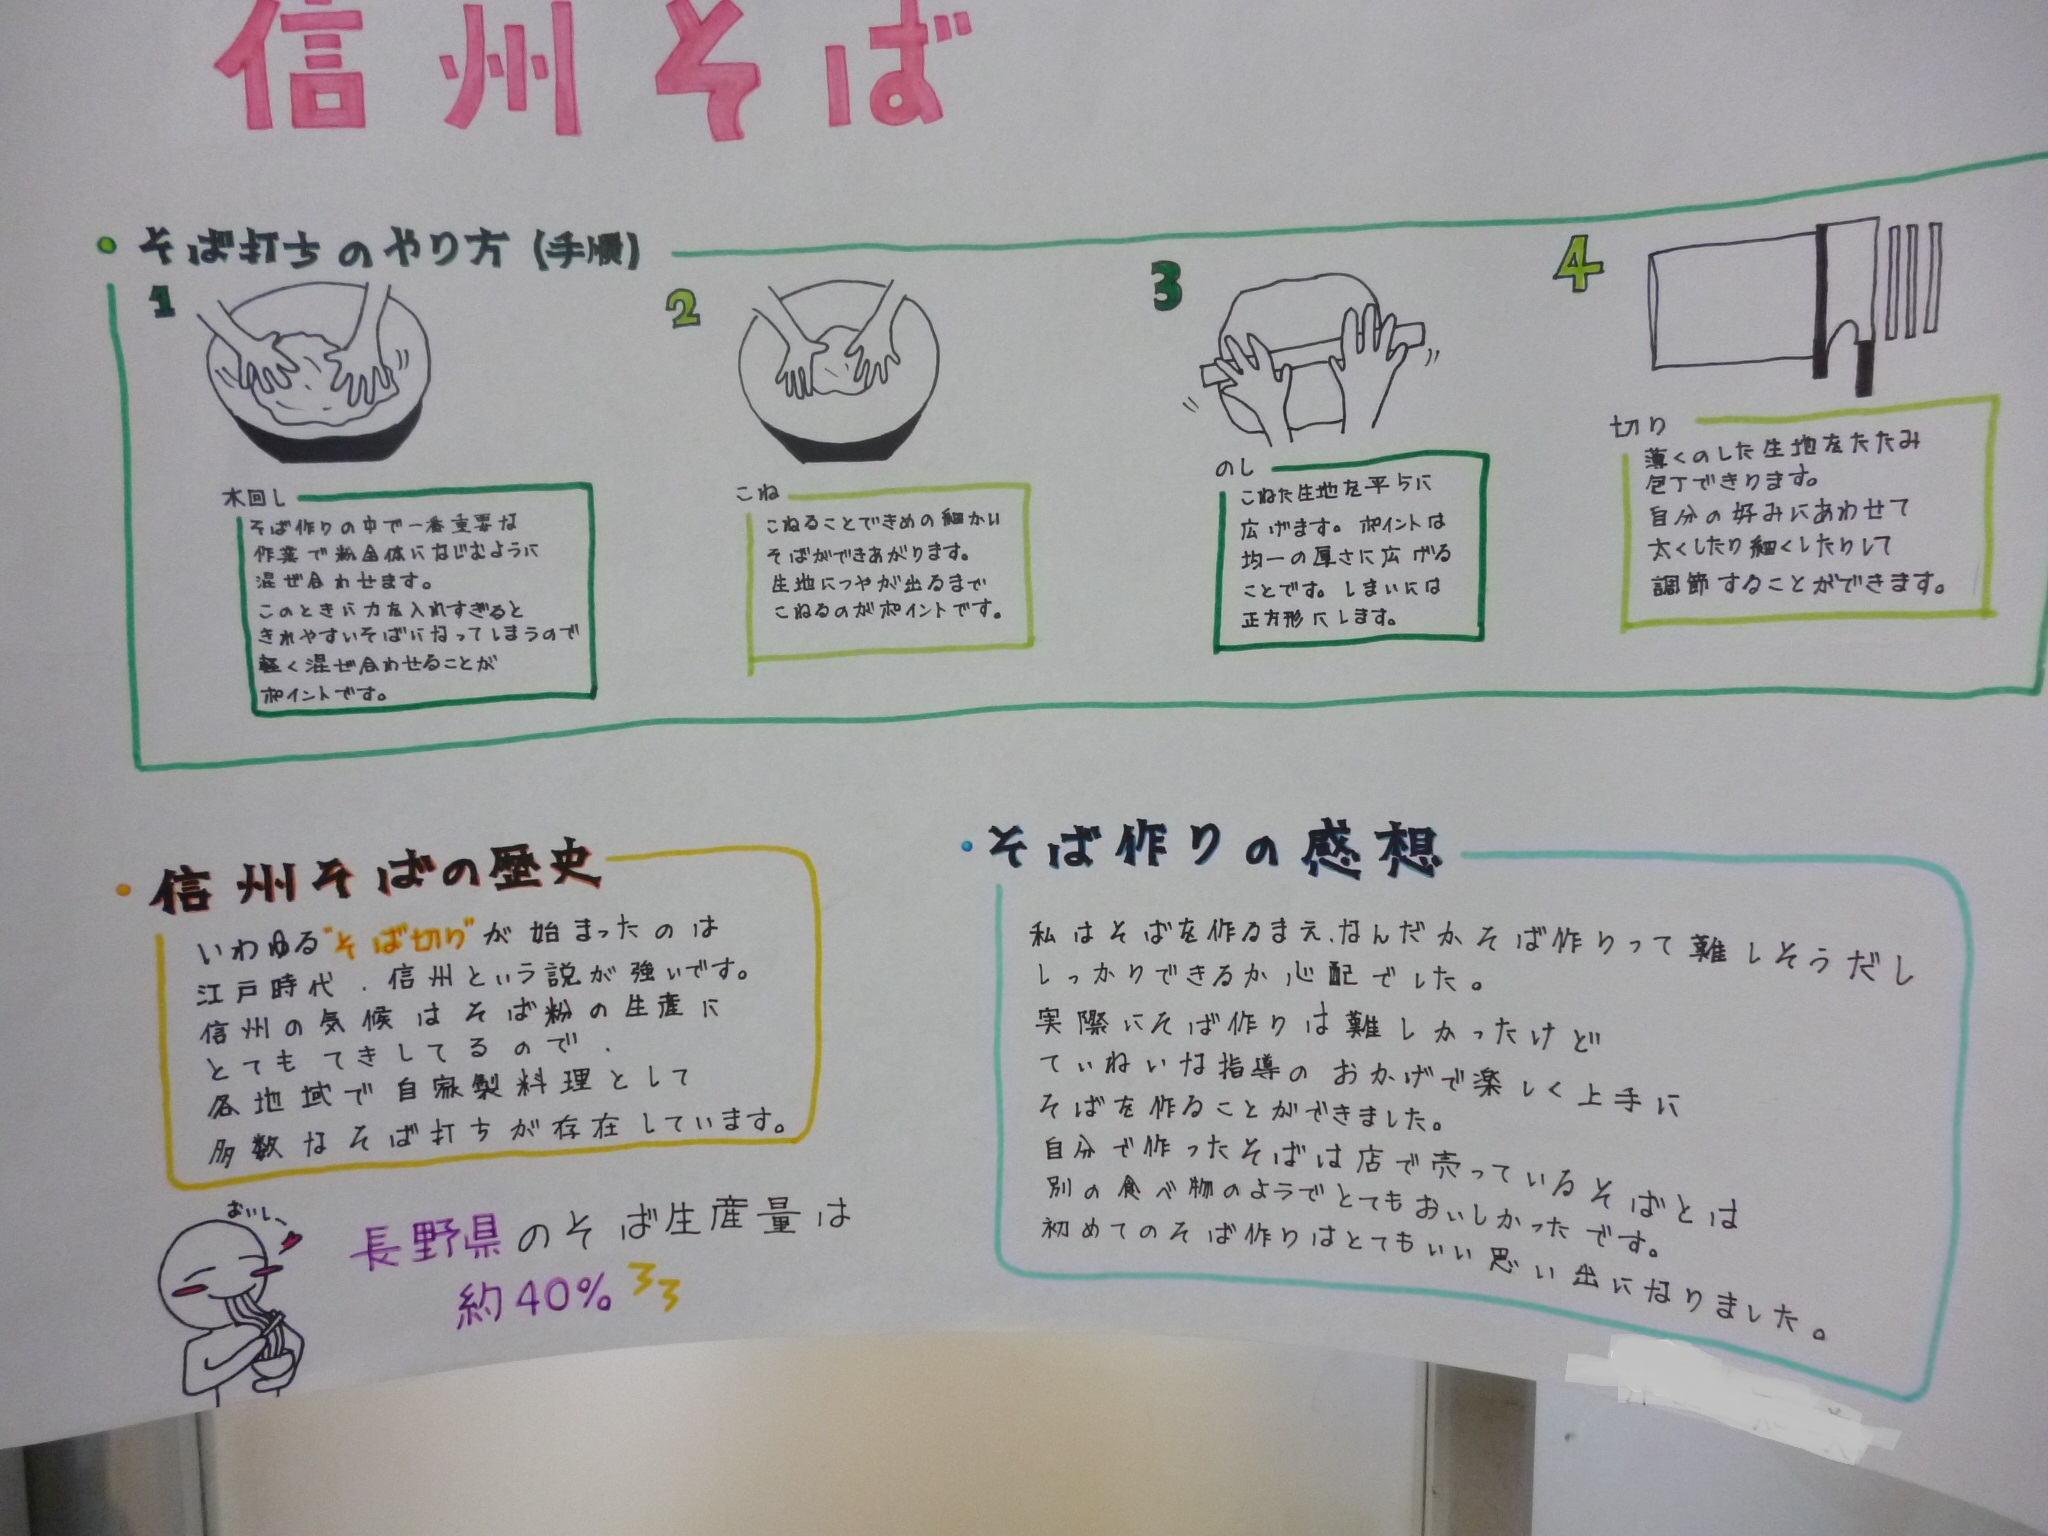 信州そば
そば打ちのやり方(手順)
1
水回し
そば作りの中で一番重要な
作業で粉全体になじむように
混ぜ合わせます。
このときに力を入れすぎると
きれやすいそばになってしまうので
軽く混ぜ合わせることが
ポイントです。
2
こね
こねることできめの細かい
そばができあがります。
生地につやが出るまで
こねるのがポイントです。
3
のし
こねた生地を平らに
広げます。ポイントは
均一の厚さに広げる
ことです。しまいには
正方形にします。
4
切り
薄くのした生地をたたみ
包丁できります。
自分の好みにあわせて
太くしたり細くしたりして
調節することができます。
信州そばの歴史
いわゆる"そば切り"が始まったのは
江戸時代、信州という説が強いです。
信州の気候はそば粉の生産に
とてもてきしてるので、
各地域で自家製料理として
多数なそば打ちが存在しています。
おいしー
長野県のそば生産量は
約40%
そば作りの感想
私はそばを作るまえ、なんだかそば作りって難しそうだし
しっかりできるか心配でした。
実際にそば作りは難しかったけど
ていねいな指導のおかげで楽しく上手に
そばを作ることができました。
自分で作ったそばは店で売っているそばとは
別の食べ物のようでとてもおいしかったです。
初めてのそば作りはとてもいい思い出になりました。